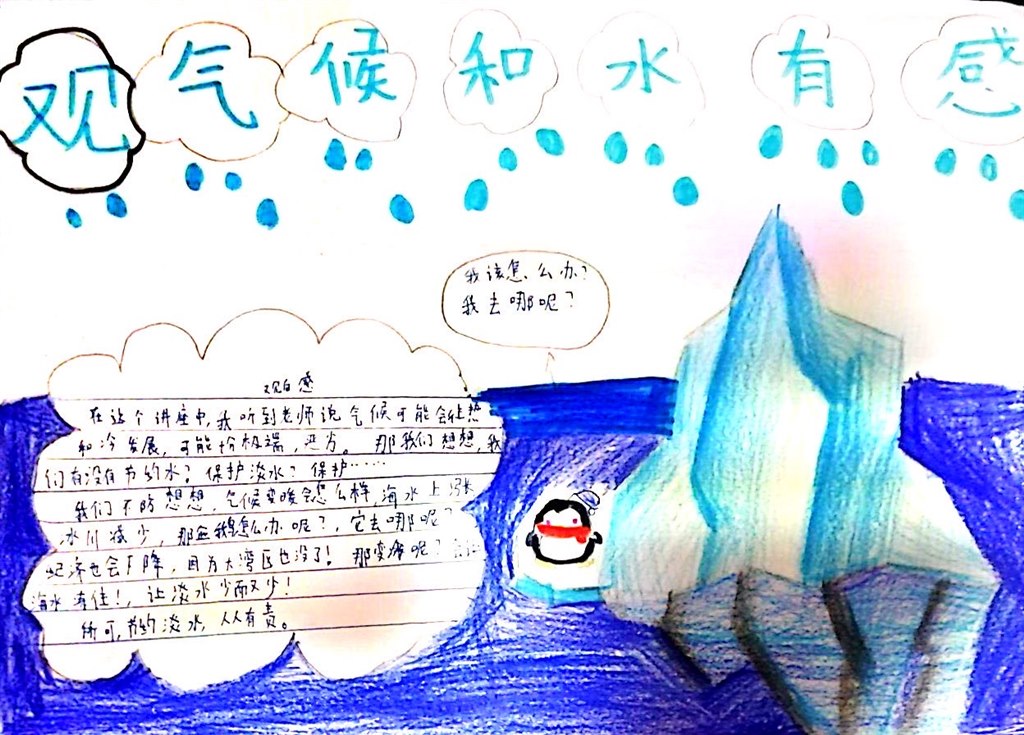 观气候和水有感
我该怎么办?
我去哪呢?
观后感
在这个讲座中,我听到老师说气候可能会往热
和冷发展,可能扮极端,恶方。那我们想想,我
们有没有节约水?保护淡水?保护……
我们不防想想,气候变暖会怎么样,海水上涨
冰川减少,那企鹅怎么办呢?,它去哪呢?
纪济也会下降,因为大湾区也没了!那变冷呢?
海水冻住!,让淡水少而又少!
所可,节约淡水,人人有责。